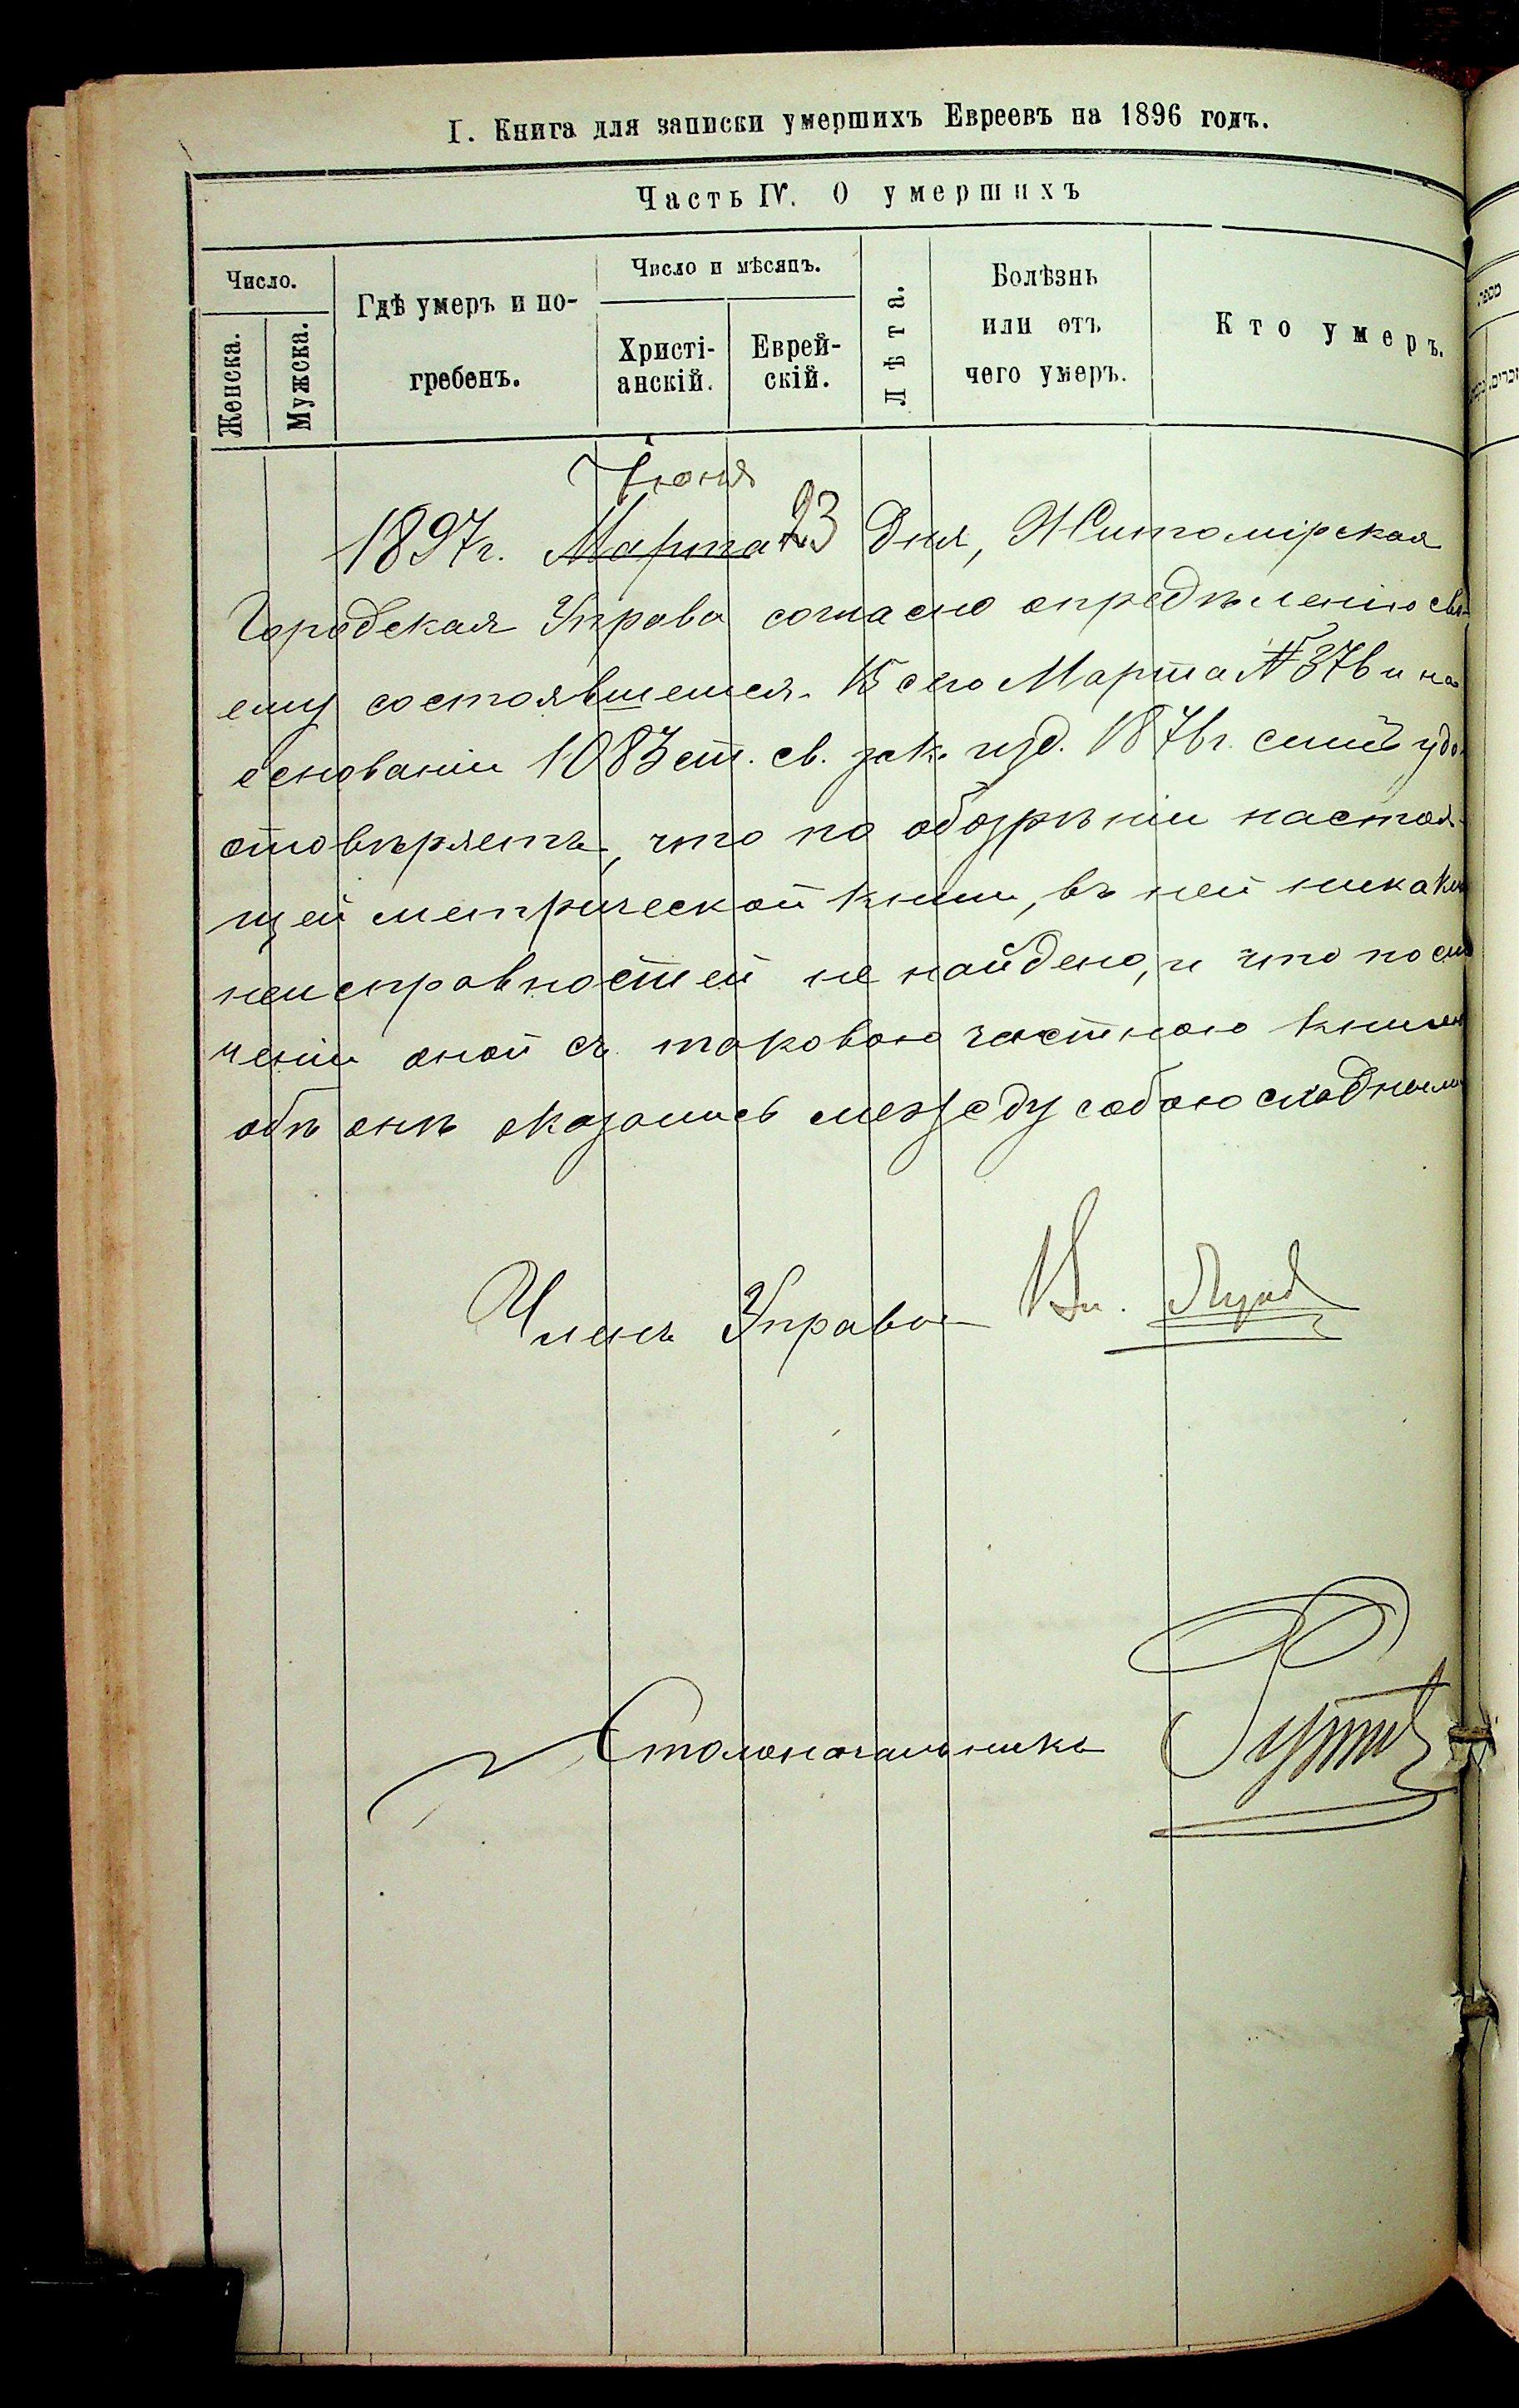 I. Книга для записки умершихъ Евреевъ на 1896 годъ.
Часть IV. О умершихъ
Число.
Женска.
Мужска.
Гдѣ умеръ и по-
гребенъ.
Число и мѣсяцъ.
Христі-
анскій.
Еврей-
скій.
Лѣта.
Болѣзнь
или отъ
чего умеръ.
Кто умеръ.
Іюня
1897г. Марта 23 дня, Житомірская
Городская Управа согласно опредѣленію сво-
ему состоявшемся 15 сего Марта № 376 и на
основаніи 1083 ст. св. зак. изд. 1876г. симъ удо-
стовѣряетъ, что по обозрѣніи настоя-
щей метрической книги, въ ней никаких
неисправностей не найдено, и что по сли
ченіи оной съ таковою частною книгою
обѣ онѣ оказались между собою сходными
Членъ Управы
Столоначальникъ